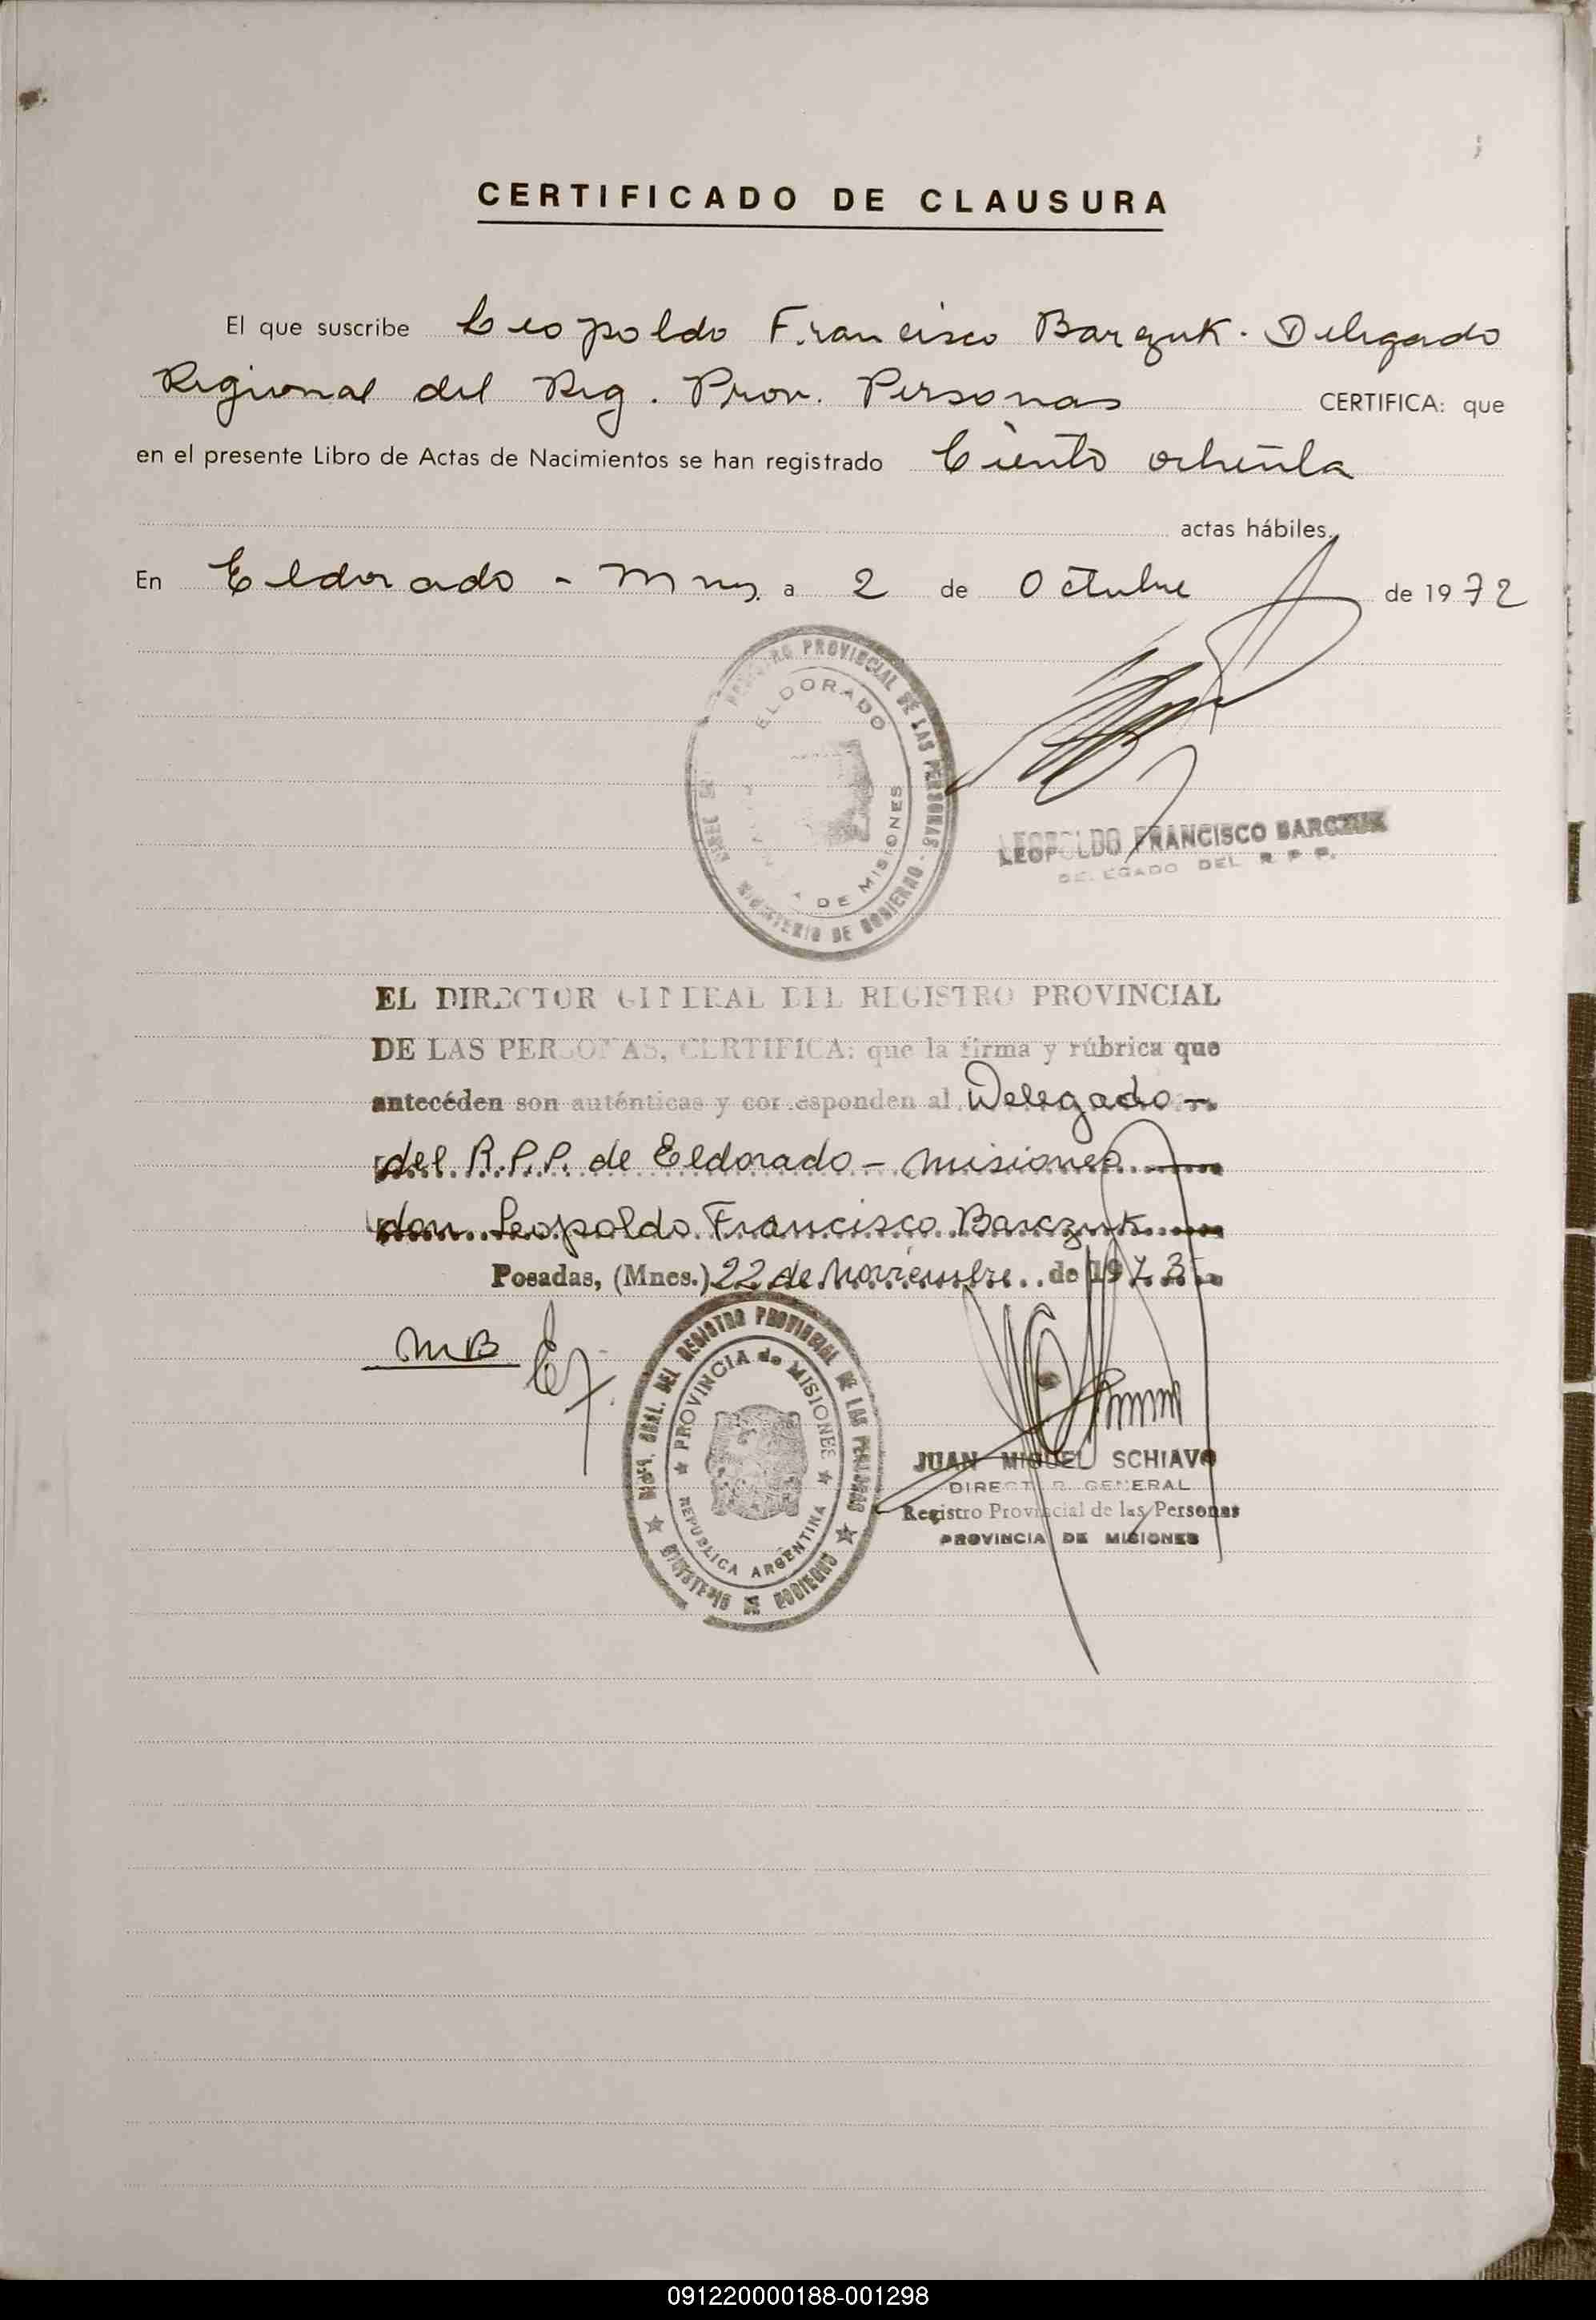 CERTIFICADO DE CLAUSURA
El que suscribe Leopoldo Francisco Barczuk. Delegado
Regional del Reg. Prov. Personas CERTIFICA: que
en el presente Libro de Actas de Nacimientos se han registrado Ciento ochenta
actas hábiles.
En Eldorado - Mnes. a 2 de Octubre de 1972
REGISTRO PROVINCIAL DE LAS PERSONAS - MINISTERIO DE GOBIERNO
ELDORADO
DE MISIONES
LEOPOLDO FRANCISCO BARCZUK
DELEGADO DEL R. P. P.
EL DIRECTOR GENERAL DEL REGISTRO PROVINCIAL
DE LAS PERSONAS, CERTIFICA: que la firma y rúbrica que
antecéden son auténticas y corresponden al Delegado -
del R.P.P. de Eldorado - Misiones
don Leopoldo Francisco Barczuk
Posadas, (Mnes.) 22 de Noviembre de 1973
MB
GRAL. DEL REGISTRO PROVINCIAL DE LAS PERSONAS
PROVINCIA de MISIONES
REPUBLICA ARGENTINA
MINISTERIO DE GOBIERNO
JUAN MIGUEL SCHIAVO
DIRECTOR GENERAL
Registro Provincial de las Personas
PROVINCIA DE MISIONES
091220000188-001298